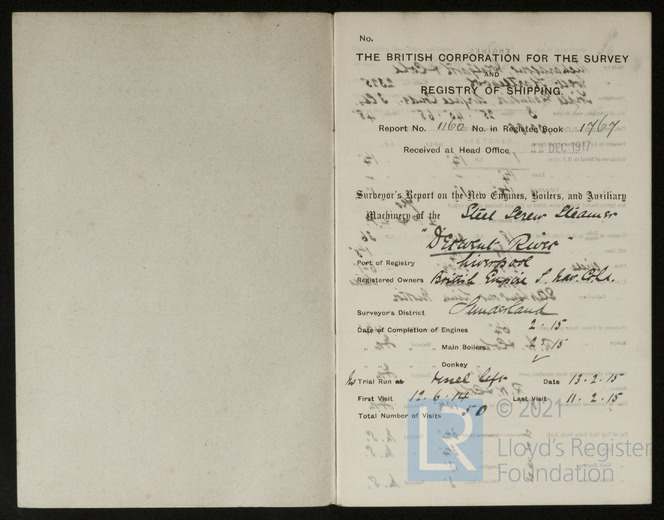 No.
THE BRITISH CORPORATION FOR THE SURVEY
AND
REGISTRY OF SHIPPING.
Report No. 1160 No. in Register Book 1767
Received at Head Office 22 DEC 1917
Surveyor's Report on the New Engines, Boilers, and Auxiliary
Machinery of the Steel Screw Steamer
"Derwent River"
Port of Registry Liverpool
Registered Owners British Empire S. Nav. Co Ld.
Surveyor's District Sunderland
Date of Completion of Engines 2.15
Main Boilers 2.15
Donkey
Trial Run vessel left Date 13.2.15
First Visit 12.6.14 Last Visit 11.2.15
Total Number of Visits 50
LR
© 2021
Lloyd's Register
Foundation